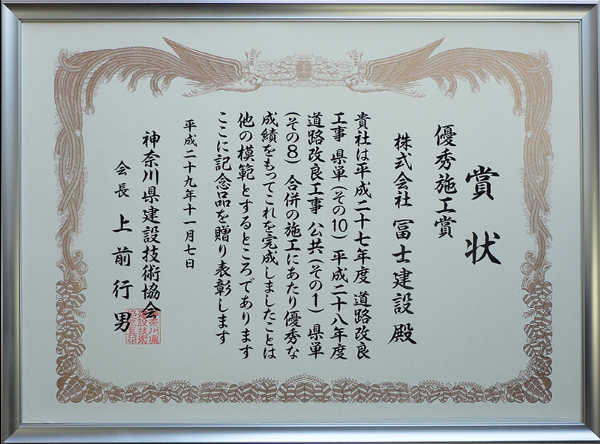 賞状
優秀施工賞
株式会社 冨士建設 殿
貴社は平成二十七年度 道路改良
工事 県単(その10)平成二十八年度
道路改良工事 公共(その1)県単
(その8)合併の施工にあたり優秀な
成績をもってこれを完成しましたことは
他の模範とするところであります
ここに記念品を贈り表彰します
平成二十九年十一月七日
神奈川県建設技術協会
会長 上前行男